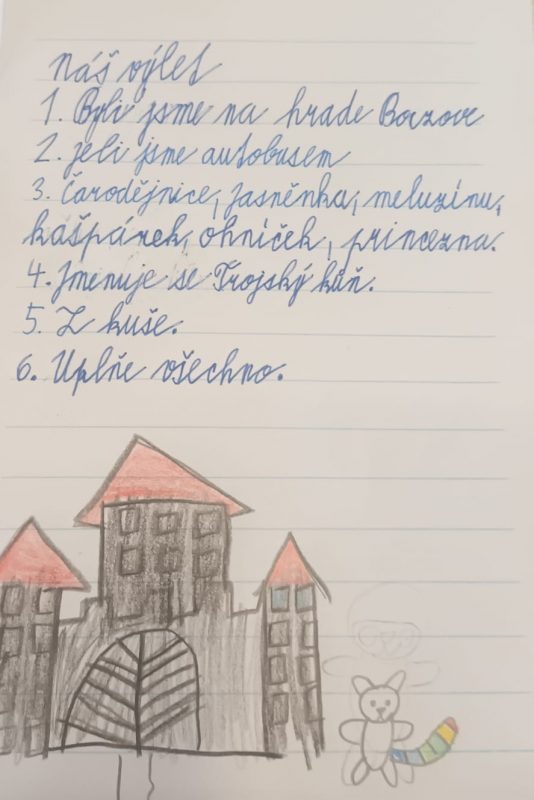 Náš výlet
1. Byli jsme na hrade Bouzove
2. jeli jsme autobusem
3. Čarodějnice, jasněnka, meluzínu,
kašpárek, ohníček, princezna.
4. Jmenuje se Trojský kůň.
5. Z kuše.
6. Uplňe všechno.